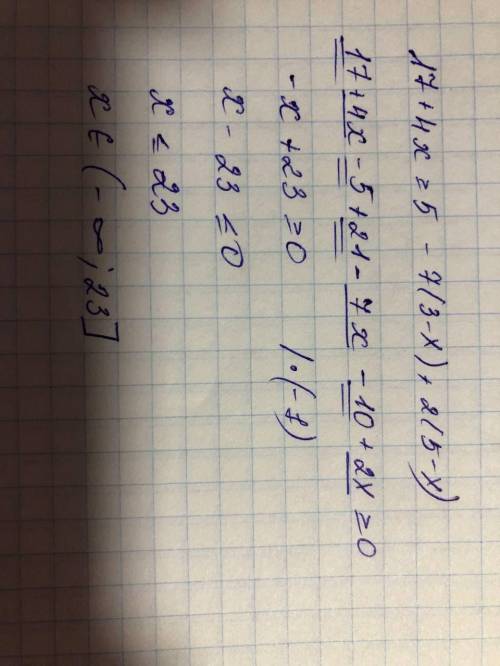 17 + 4x ≥ 5 - 7(3-x) + 2(5-x)
17 + 4x - 5 + 21 - 7x - 10 + 2x ≥ 0
-x + 23 ≥ 0 / · (-1)
x - 23 ≤ 0
x ≤ 23
x ∈ (-∞; 23]